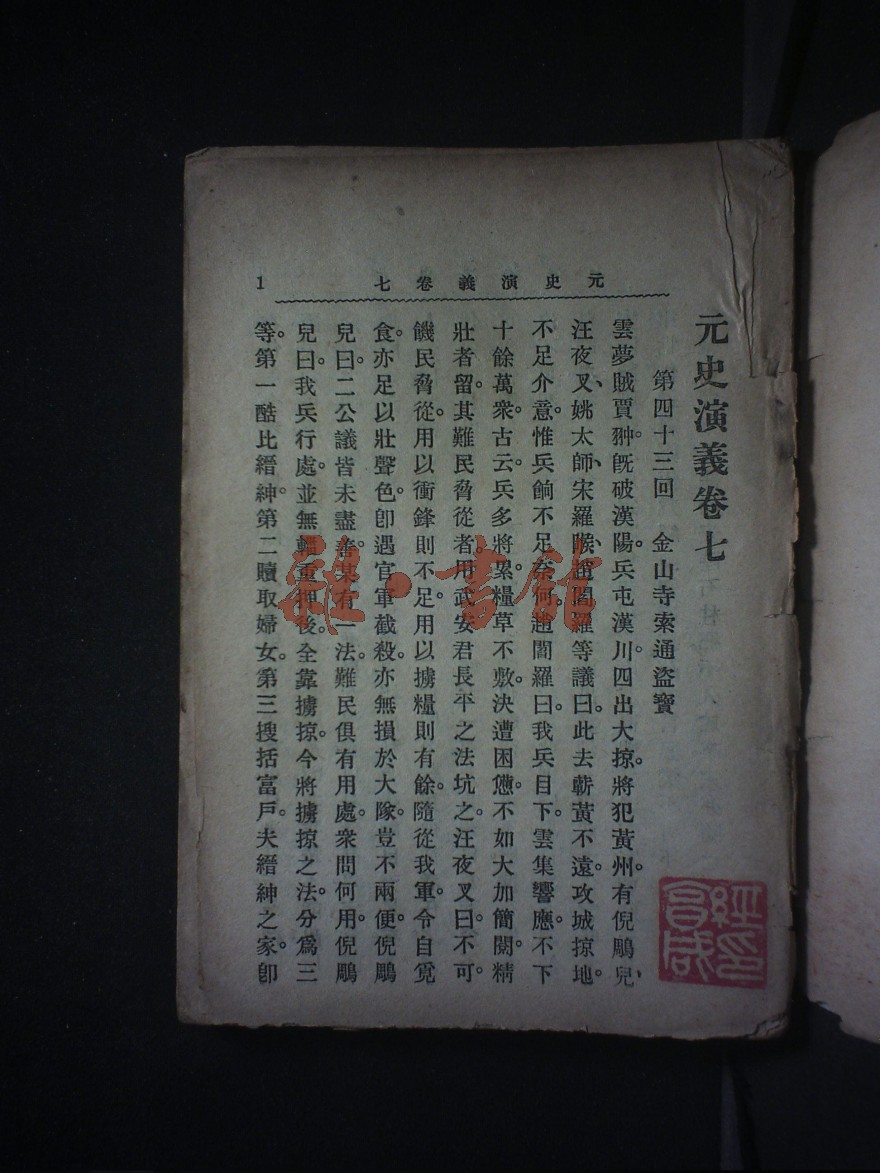 元史演義卷七 1
元史演義卷七
第四十三回 金山寺索通盜寶
雲夢賊賈翀。旣破漢陽。兵屯漢川。四出大掠。將犯黃州。有倪鵰兒、
汪夜叉、姚太師、宋羅睺、趙閻羅等議曰。此去蘄黃不遠。攻城掠地。
不足介意。惟兵餉不足奈何。趙閻羅曰。我兵目下。雲集響應。不下
十餘萬衆。古云。兵多將累。糧草不敷。決遭困憊。不如大加簡閱。精
壯者留。其難民脅從者。用武安君長平之法坑之。汪夜叉曰。不可。
饑民脅從。用以衝鋒則不足。用以擄糧則有餘。隨從我軍。令自覓
食。亦足以壯聲色。卽遇官軍截殺。亦無損於大隊。豈不兩便。倪鵰
兒曰。二公議皆未盡善。某有一法。難民俱有用處。衆問何用。倪鵰
兒曰。我兵行處。並無輜重押後。全靠擄掠。今將擄掠之法。分爲三
等。第一酷比縉紳。第二贖取婦女。第三搜括富戶。夫縉紳之家。卽
雜·書館